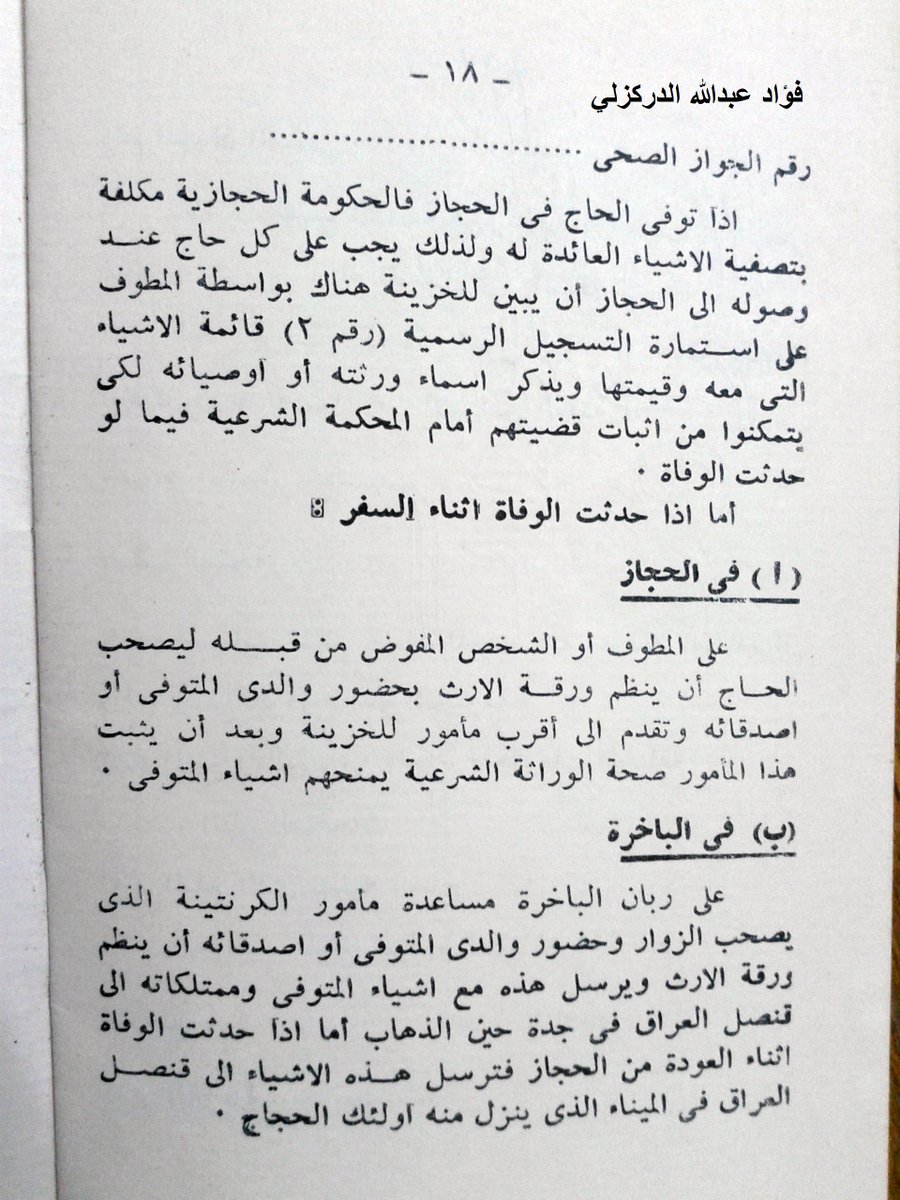 – ١٨ –
فؤاد عبدالله الدركزلي
رقم الجواز الصحى ..............................
اذا توفى الحاج فى الحجاز فالحكومة الحجازية مكلفة
بتصفية الاشياء العائدة له ولذلك يجب على كل حاج عنـــد
وصوله الى الحجاز أن يبين للخزينة هناك بواسطة المطوف
على استـمارة التسجيل الرسمية (رقم ٢) قائمة الاشياء
التى معه وقيمتها ويذكر اسماء ورثته أو اوصيائه لكى
يتمكنوا من اثبات قضيتهم أمام المحكمة الشرعية فيما لو
حدثت الوفاة ٠
أما اذا حدثت الوفاة اثناء السفر :
(أ) فى الحجاز
على المطوف أو الشخص المفوض من قبـــله ليصحب
الحـاج أن ينظم ورقـة الارث بحضور والدى المتوفى أو
اصدقائه وتقدم الى أقرب مأمور للخزينة وبعد أن يثبت
هذا المأمور صحة الوراثة الشرعية يمنحهم اشياء المتوفى ٠
(ب) فى الباخرة
على ربان الباخرة مساعدة مأمور الكرنتينة الذى
يصحب الزوار وحضور والدى المتوفى أو اصدقائه أن ينظم
ورقة الارث ويرسل هذه مع اشياء المتوفى وممتلكاته الى
قنصل العراق فى جدة حين الذهاب أما اذا حدثت الوفاة
اثناء العودة من الحجاز فترسل هـــذه الاشياء الى قنصــل
العراق فى الميناء الذى ينزل منه اولئك الحجاج ٠